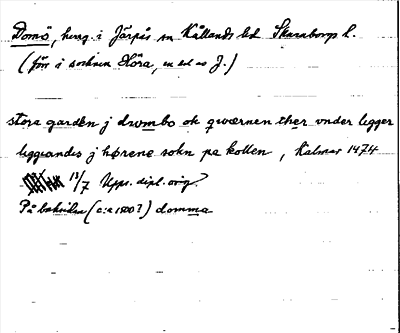 Domö, herrg. i Järpås sn Kållands hd Skaraborgs l.
(förr i socknen Höra, en del av J.)
stora garden j dwmbo ok qwærnen ther vnder ligger
liggiandis j hørene sokn pa kollen, Kalmar 1474
11/7 Upps. dipl. orig.
På baksidan (c:a 1500?) domma